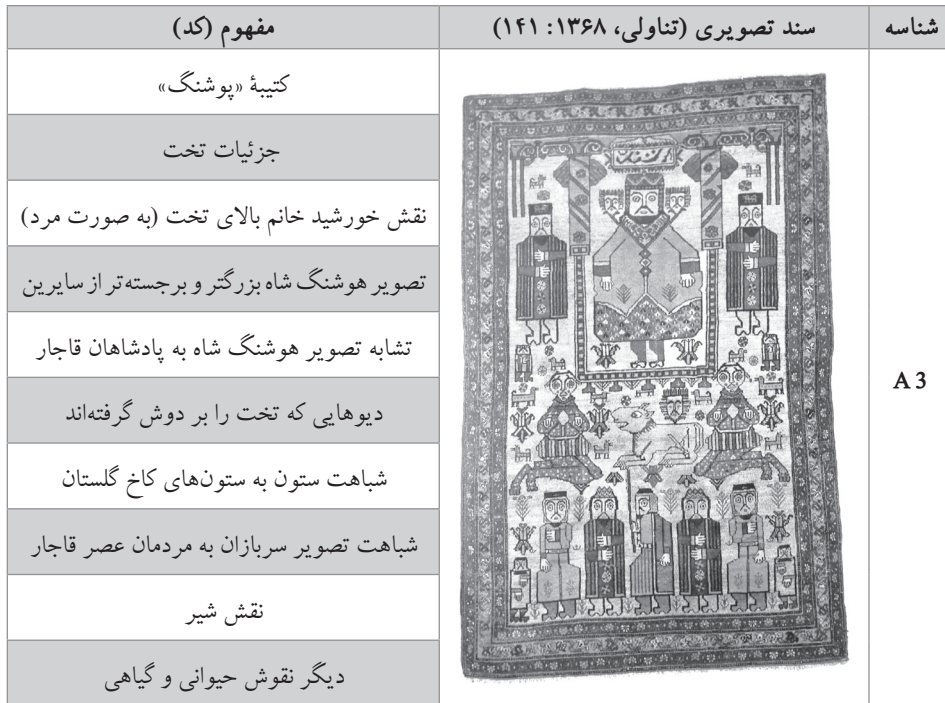 شناسه
سند تصویری (تناولی، ۱۳۶۸: ۱۴۱)
مفهوم (کد)
A 3
کتیبهٔ «پوشنگ»
جزئیات تخت
نقش خورشید خانم بالای تخت (به صورت مرد)
تصویر هوشنگ شاه بزرگتر و برجسته‌تر از سایرین
تشابه تصویر هوشنگ شاه به پادشاهان قاجار
دیوهایی که تخت را بر دوش گرفته‌اند
شباهت ستون به ستون‌های کاخ گلستان
شباهت تصویر سربازان به مردمان عصر قاجار
نقش شیر
دیگر نقوش حیوانی و گیاهی